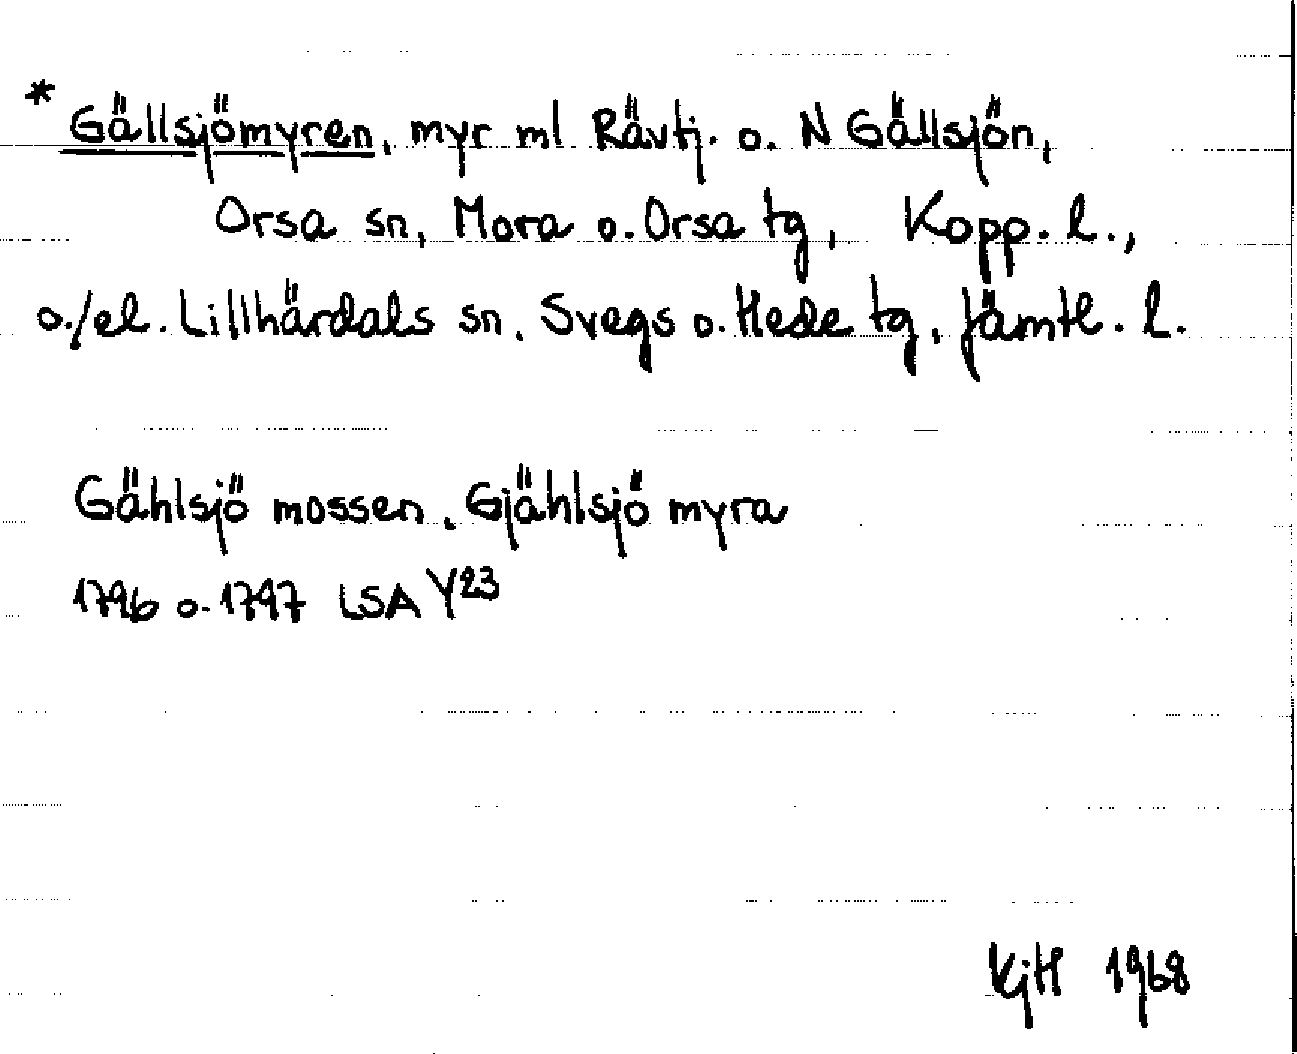 * Gällsjömyren, myr ml Rävtj. o. N Gällsjön,
Orsa sn, Mora o. Orsa tg, Kopp. l.,
o./el. Lillhärdals sn, Svegs o. Hede tg, Jämtl. l.
Gählsjö mossen, Gjählsjö myra
1796 o. 1797 LSA Y23
KjH 1968